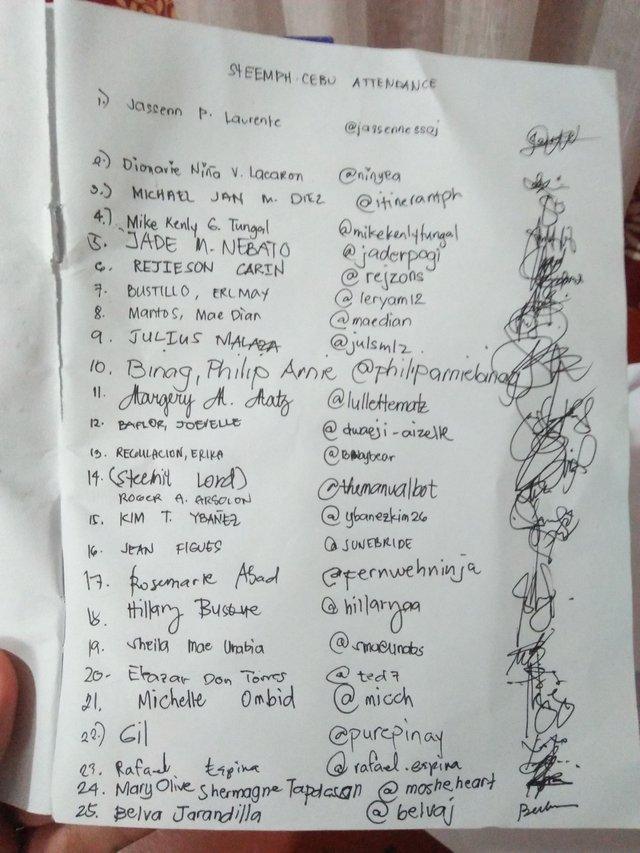 STEEMPH.CEBU ATTENDANCE
1.) Jassenn P. Laurente @jassennessaj
2.) Dionarie Niña V. Lacaron @ninyea
3.) MICHAEL JAN M. DIEZ @itinerantph
4.) Mike Kenly G. Tungal @mikekenlytungal
5. JADE M. NEBATO @jaderpogi
6. REJIESON CARIN @rejzons
7. BUSTILLO, ERL MAY @leryam12
8. Mantos, Mae Dian @maedian
9. JULIUS MALAZA @julsm12
10. Binag, Philip Arnie @philiparniebinag
11. Margery M. Matz @lullettematz
12. BAFLOR, JOEVELLE
13. REGULACION, ERIKA
14. (Steemit Lord) @thumanualbot
ROGER A. ARSOLON
15. KIM T. YBAÑEZ @ybanezkim26
16. JEAN FIGUES @JUNEBRIDE
17. Rosemarie Abad @fernwehninja
18. Hillary @hillaryaa
19. Sheila Mae Unabia @smaeunabs
20. Eleazar Don Torres @ted7
21. Michelle Ombid @micch
22.) Gil @purepinay
23. Rafael Espina @rafael.espina
24. Mary Olive Shermagne Tapdasan @moshe.heart
25. Belva Jarandilla @belvaj